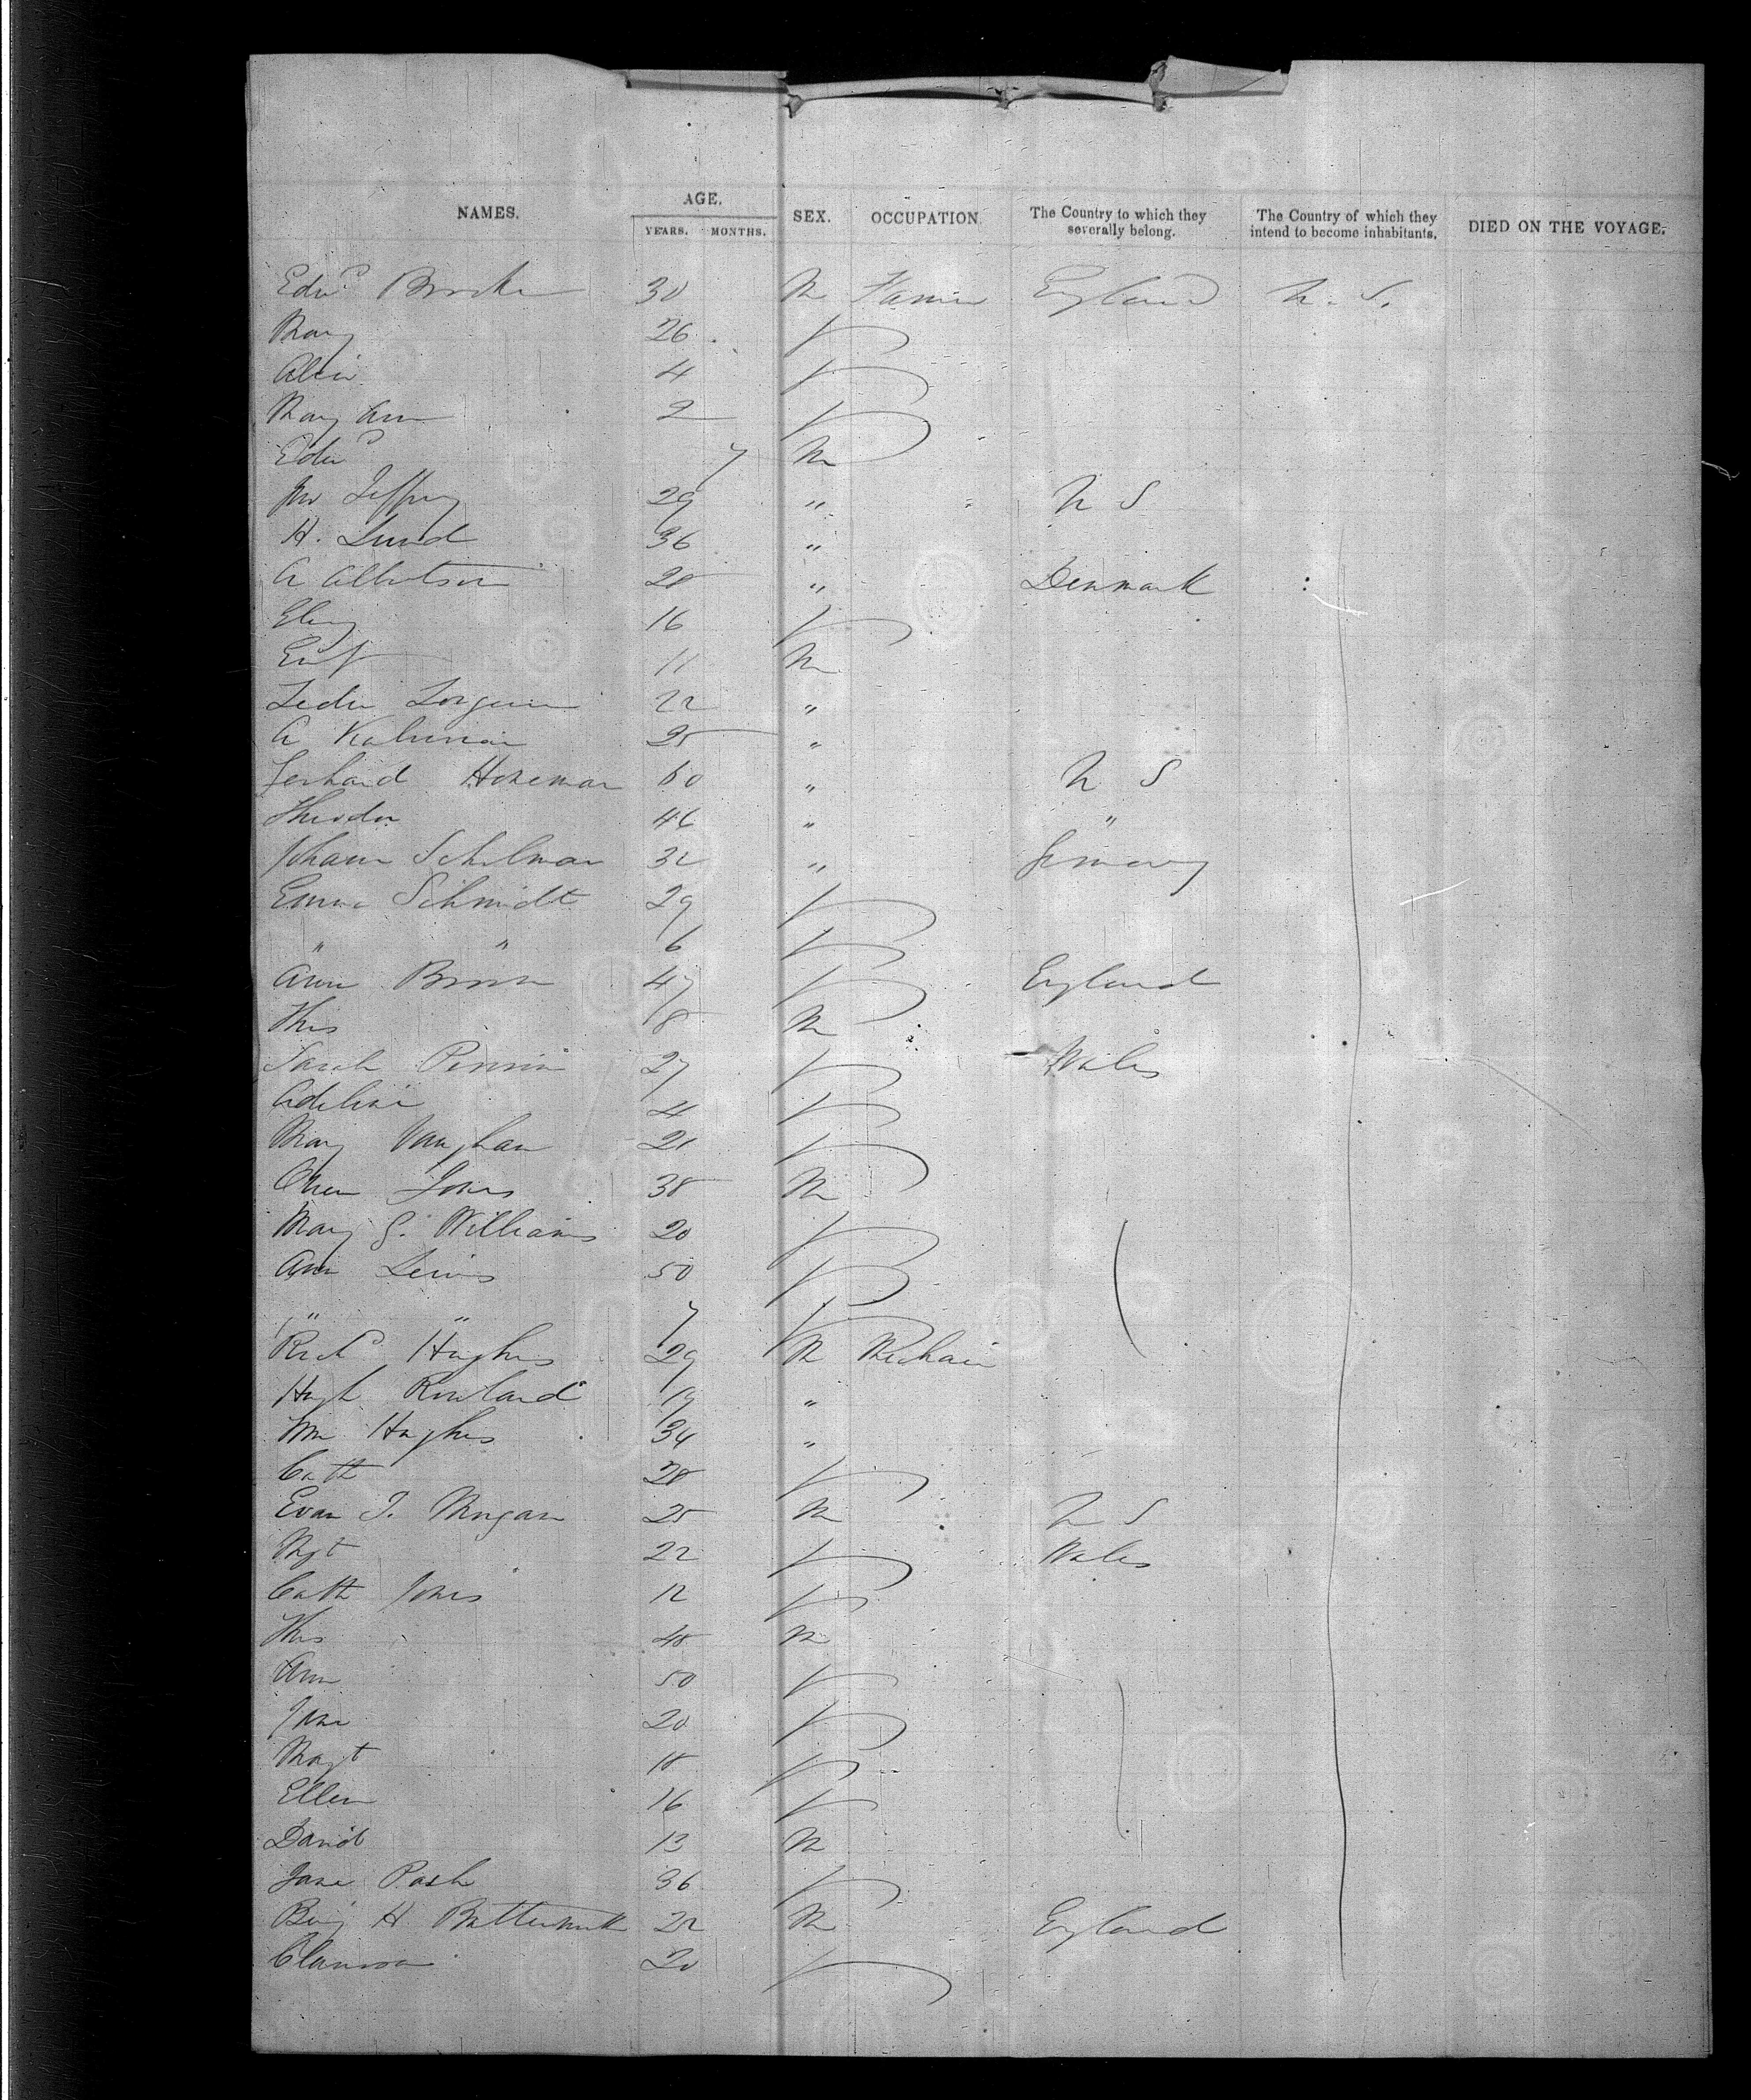 NAMES. AGE. YEARS. MONTHS. SEX. OCCUPATION. The Country to which they severally belong. The Country of which they intend to become inhabitants. DIED ON THE VOYAGE.
Edwd 30 M Farmer England U. S.
Mary 26
4
Mary Ann 2
Edwd 7 M
Jno Jeffrey 29 " U S
H. Lund 36 "
A Albertson 28 " Denmark
16
11 M
22 "
A 25 "
Gerhard Horeman 60 " U S
Theodor 46 " "
Johann Schulman 32 " Germany
Emma Schmidt 29
" " 6
Ann Brown 47 England
Thos 18 M
Sarah 27 Wales
Adeline 4
Mary Vaughan 21
Owen Jones 38 M
Mary G. Williams 20
Ann Lewis 50
" " 7
Richd Hughes 29 M Mechanic
Hugh Rowland 19 "
Wm Hughes 34 "
Cath 28
Evan T. Morgan 25 M U S
Mgt 22 Wales
Cath Jones 12
Thos 48 M
Ann 50
Jane 20
Magt 18
Ellen 16
David 13 M
Jane Pash 36
Benj H. Butterworth 22 M England
20